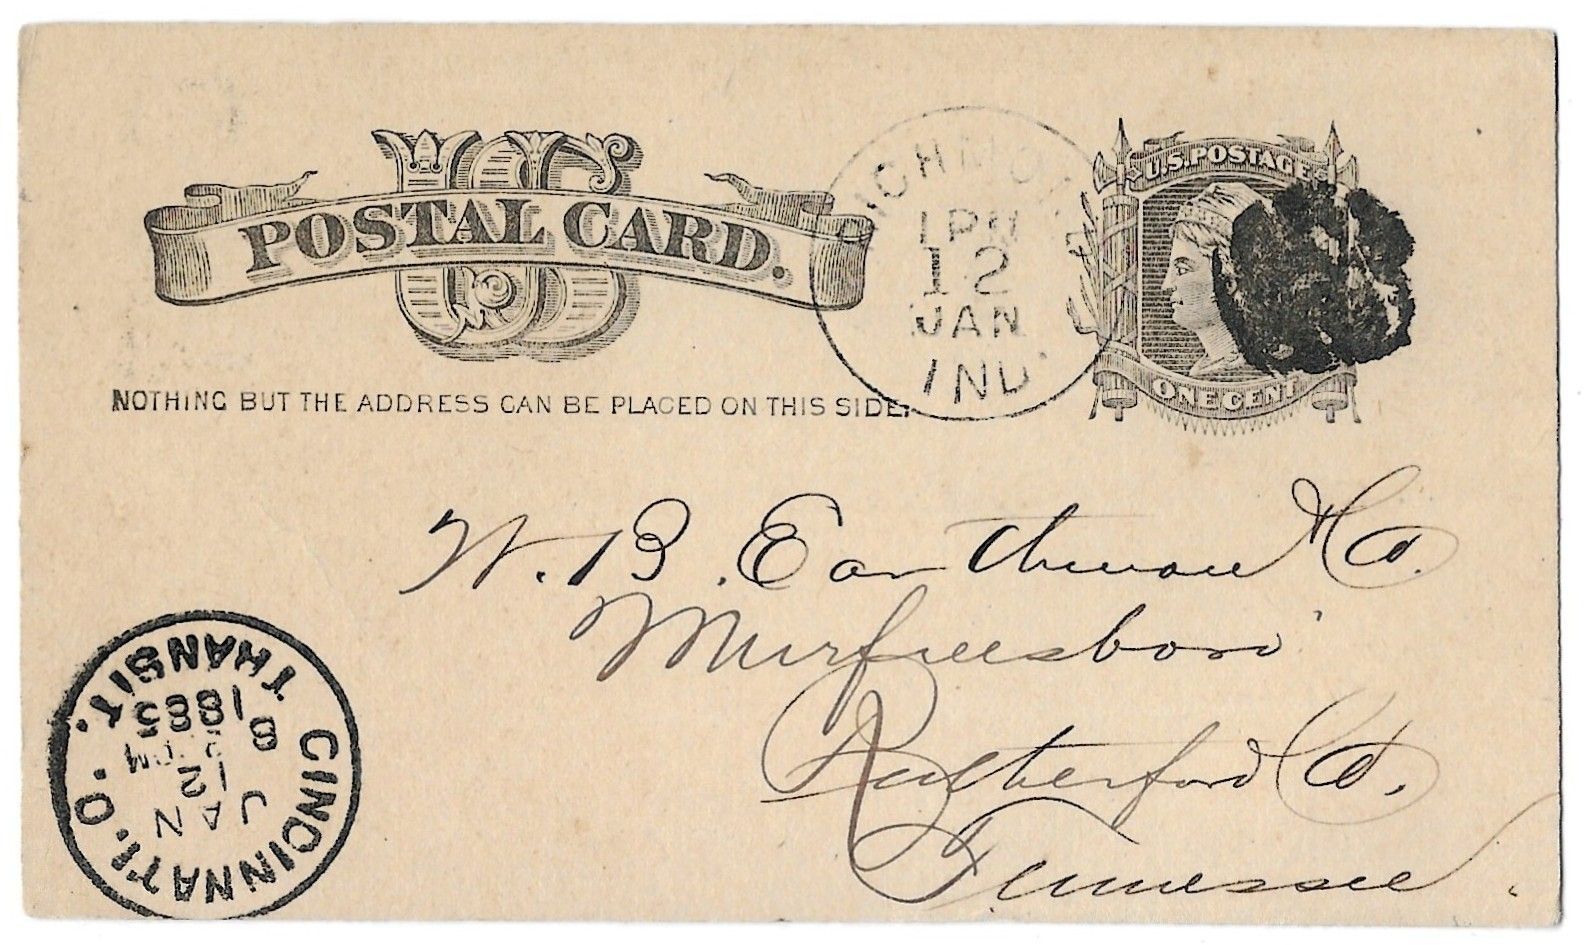 US
POSTAL CARD.
NOTHING BUT THE ADDRESS CAN BE PLACED ON THIS SIDE.
RICHMOND
1 PM
12
JAN
IND.
U.S. POSTAGE
ONE CENT
W. B. Earthman & Co.
Murfreesboro
Rutherford Co.
Tennessee.
CINCINNATI. O.
TRANSIT.
JAN
12
8 PM
1885